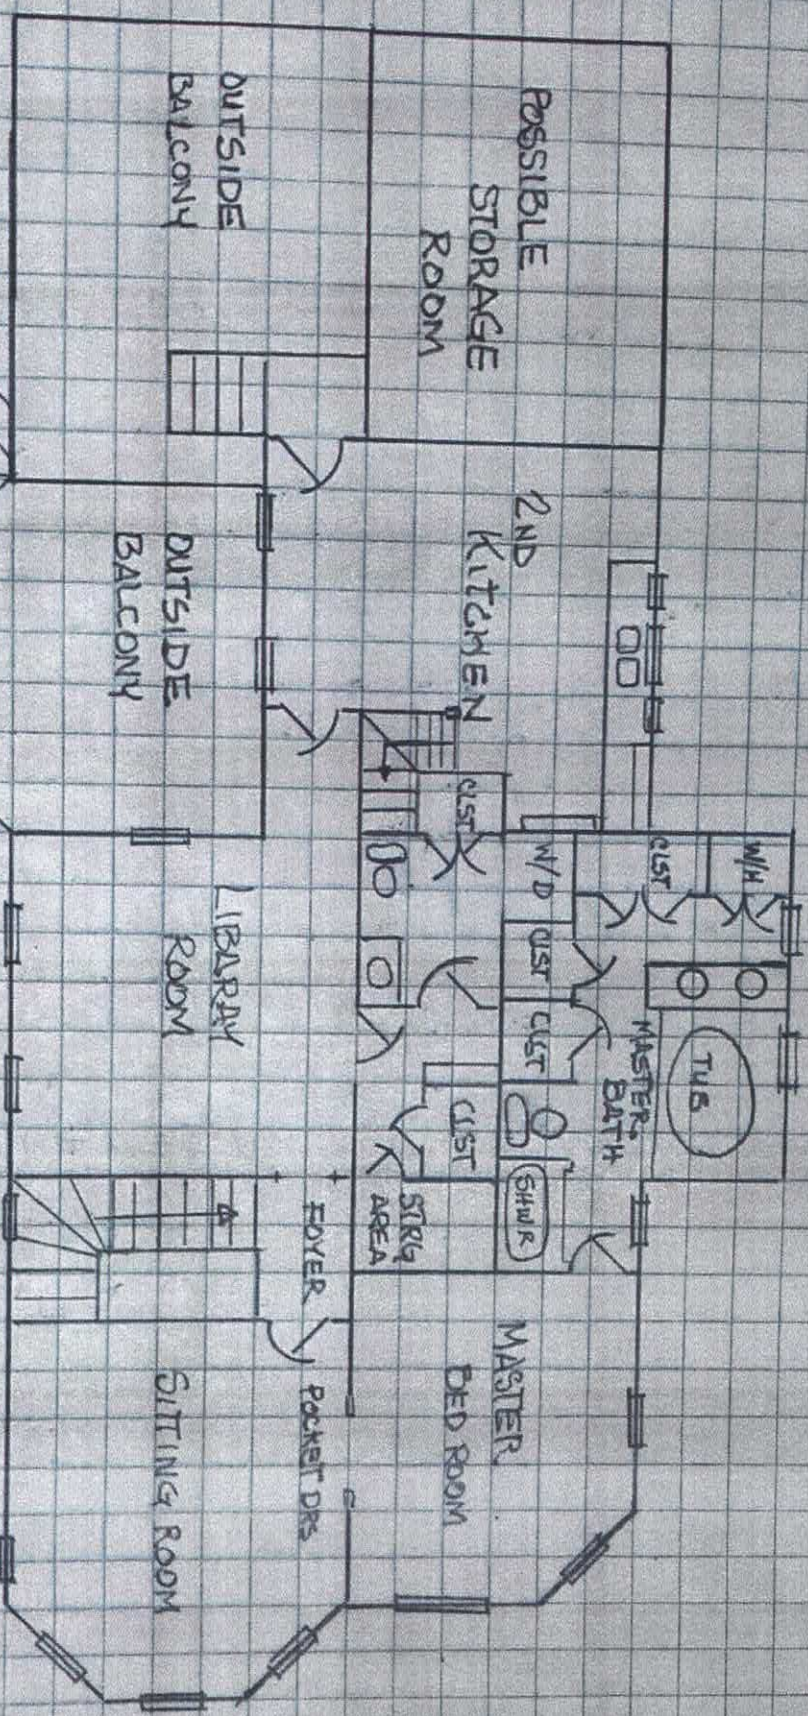 POSSIBLE
STORAGE
ROOM
OUTSIDE
BALCONY
2ND
KITCHEN
OUTSIDE
BALCONY
CLST
W/H
CLST
W/D
CLST
CLST
MASTER
BATH
TUB
SHWR
CLST
STRG
AREA
LIBARAY
ROOM
FOYER
MASTER
BED ROOM
POCKET DRS
SITTING ROOM